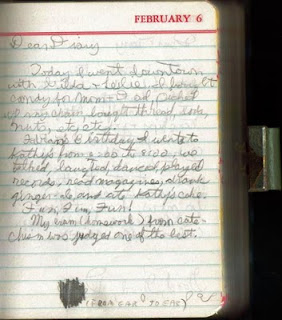 FEBRUARY 6
Dear Diary
Today I went downtown
with Hilda & Leslie. I bought
candy for Mom & Dad,
up my chain, bought thread, soda,
nuts, etc, etc.
Kathy's birthday. I went to
Kathy's from 2:00 to 8:00. We
talked, laughed, danced, played
records, read magazines, drank
ginger-ale and ate Kathy's cke.
Fun, Fun, Fun!
My exam (homework) from cate-
chism was judged one of the best.
(FROM EAR TO EAR)